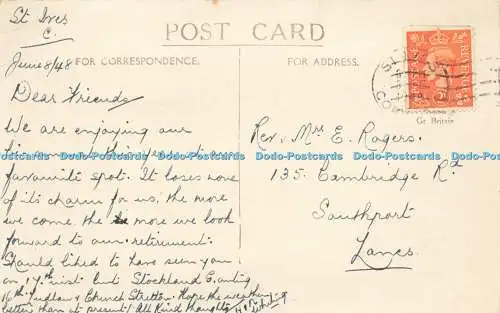 St Ives
C.
June 8/48
POST CARD
FOR CORRESPONDENCE.
FOR ADDRESS.
Dear Friends
We are enjoying our
favourite spot. It loses none
of its charm for us, the more
we come, the more we look
forward to our retirement.
Should liked to have seen you
on 17th inst but Stockland C. outing
16th Ludlow & Church Stretton. Hope the weather
better than at present! All kind thoughts
REVENUE
Gt. Britain
Rev. Mrs E. Rogers.
135. Cambridge Rd
Southport
Lancs.
Do-Postcards Do-Postcards Do-Postcards Do-Postcards Do-Postcards